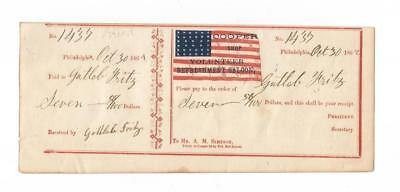 No. 1437
Philadelphia, Oct 30 186
Paid to Gotlob Fritz
Seven Dollars
Received by Gottlob Fritz
COOPER
SHOP
VOLUNTEER
REFRESHMENT SALOON,
No. 1437
Philadelphia, Oct 30 186
Gotlob Fritz
Please pay to the order of
Seven Dollars, and this shall be your receipt.
PRESIDENT.
Secretary
To Mr. A. M. Simpson,